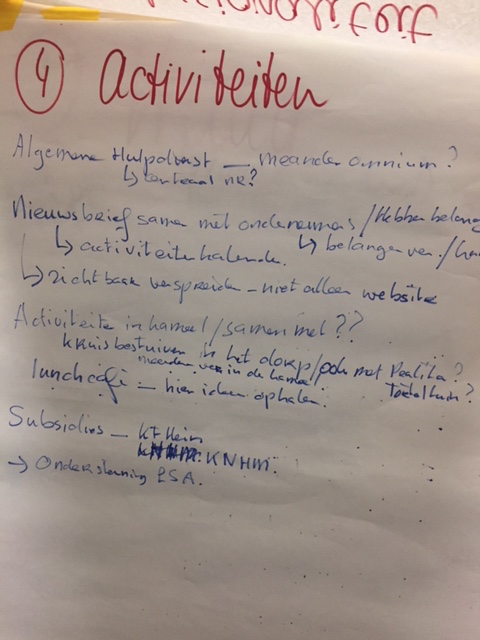 ④ Activiteiten
Algemene Hulpdienst — meander omnium?
↳ centraal nr?
Nieuwsbrief samen met ondernemers / Hebben belang
↳ activiteitenkalender. ↳ belangen ver. /
↳ zichtbaar verspreiden - niet alleen website
Activiteiten in hameel / samen met ??
kruisbestuiven in het dorp / ook met Realita?
meerdere ver in de hameel Textielhuis?
lunchcafé — hier ideeën ophalen.
Subsidies — KF Hein
KNHM.
→ Ondersteuning LSA.